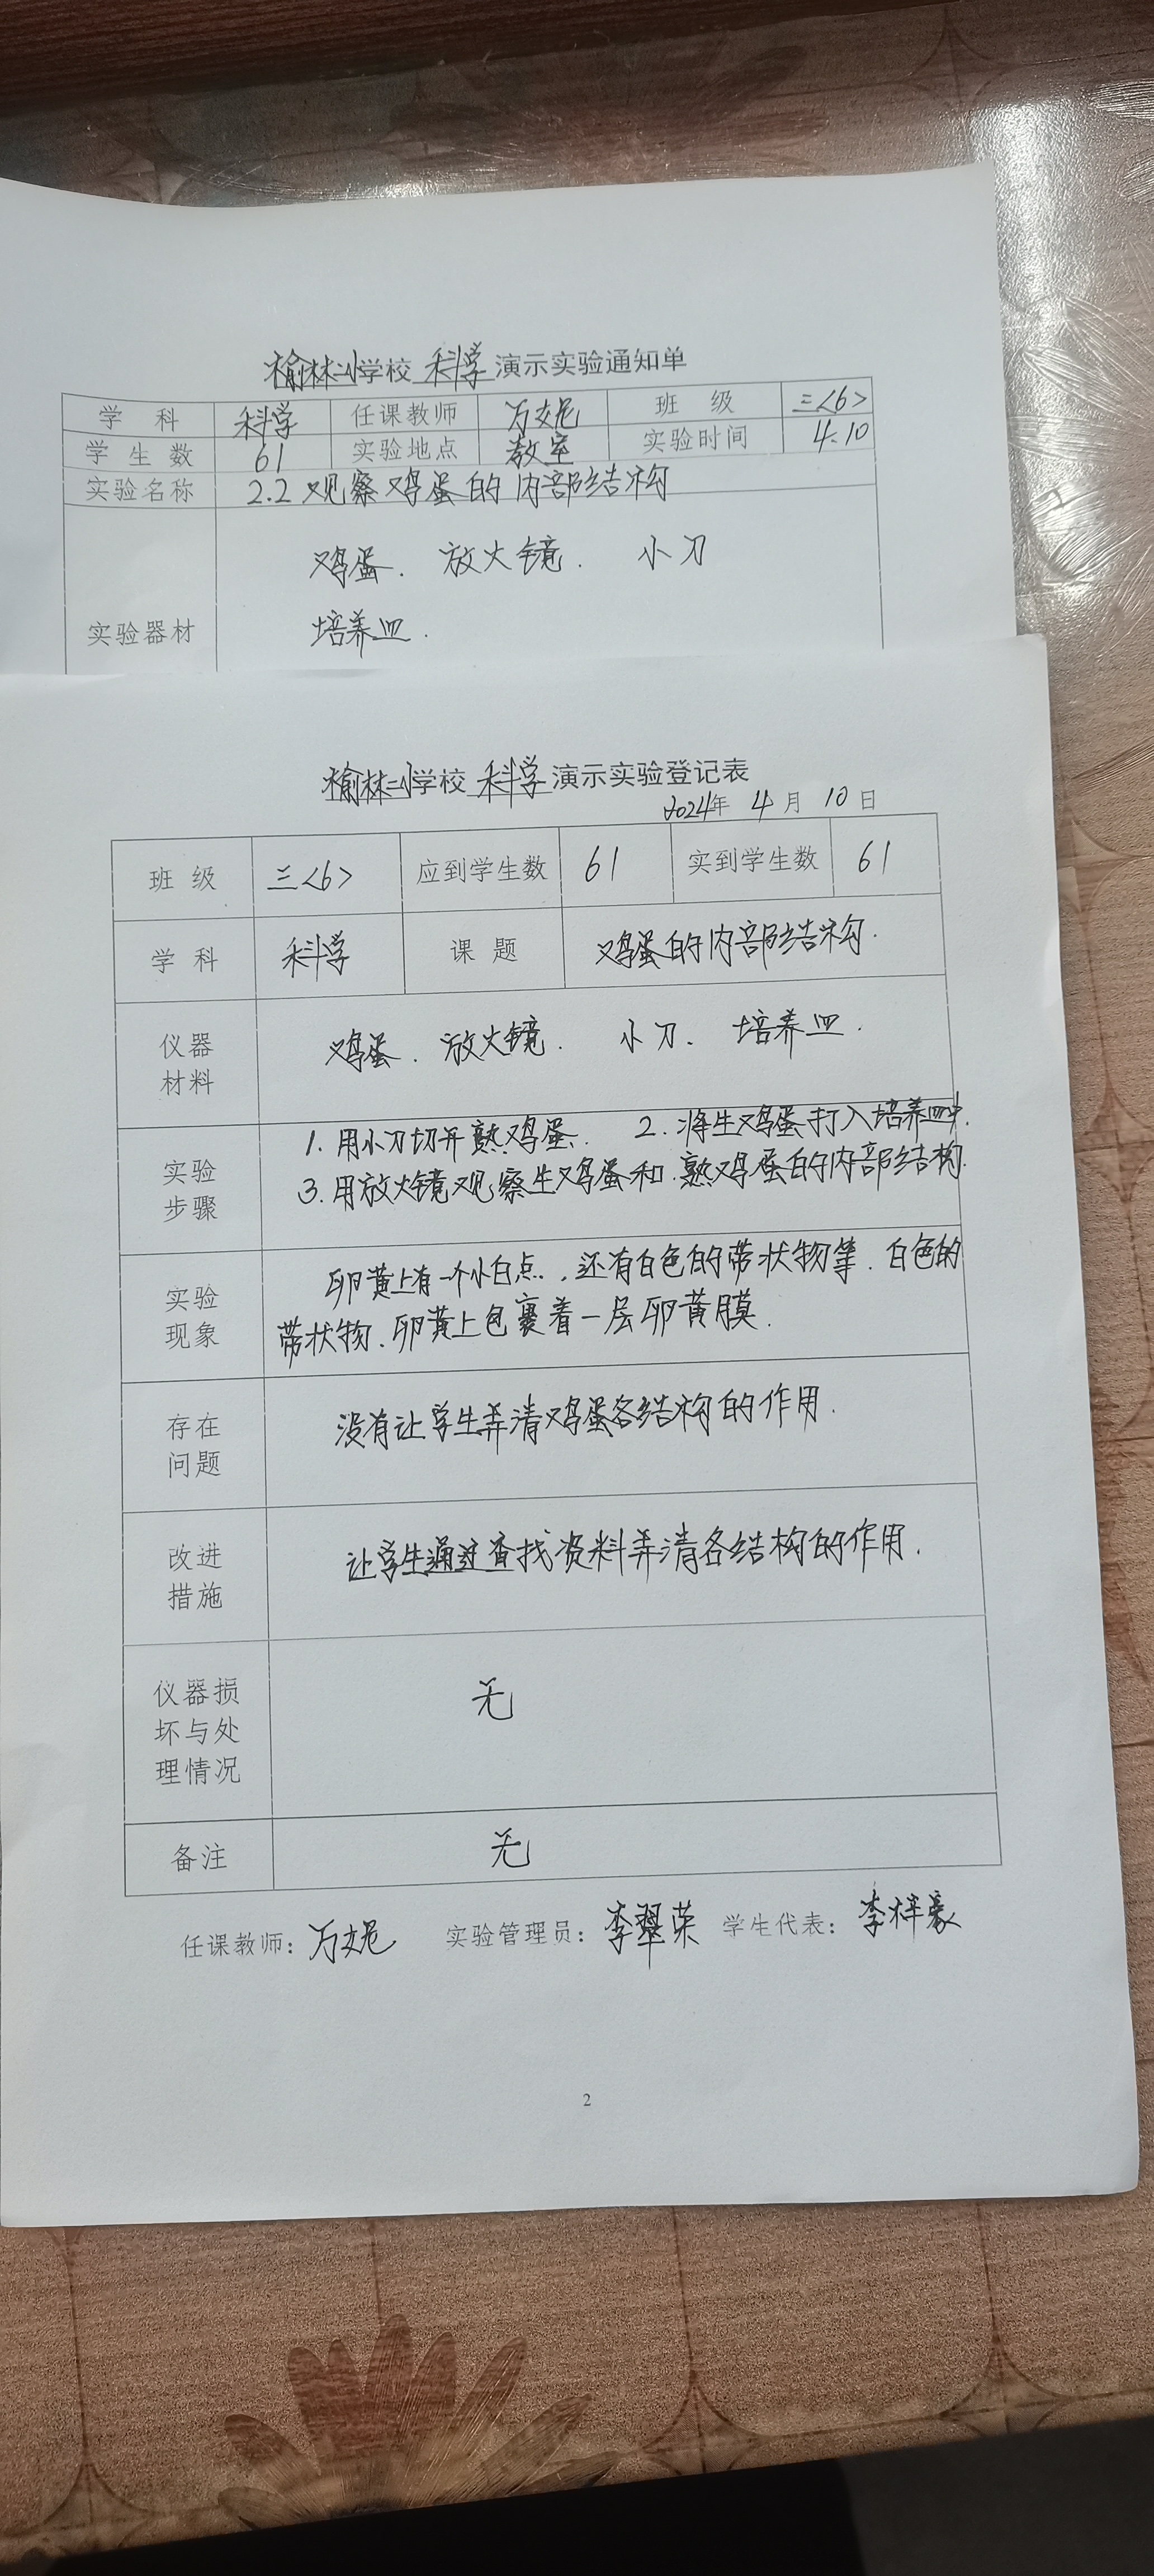 榆林三小学校 科学 演示实验通知单
学 科 科学 任课教师 万妮 班 级 三<6>
学 生 数 61 实验地点 教室 实验时间 4.10
实验名称 2.2 观察鸡蛋的内部结构
鸡蛋. 放大镜. 小刀
实验器材 培养皿.
榆林三小学校 科学 演示实验登记表
2024年 4 月 10 日
班 级 三<6> 应到学生数 61 实到学生数 61
学 科 科学 课 题 鸡蛋的内部结构.
仪器
材料
鸡蛋. 放大镜. 小刀. 培养皿.
实验
步骤
1. 用小刀切开熟鸡蛋. 2. 将生鸡蛋打入培养皿中.
3. 用放大镜观察生鸡蛋和熟鸡蛋的内部结构.
实验
现象
卵黄上有一个小白点.,还有白色的带状物等. 白色的
带状物.卵黄上包裹着一层卵黄膜.
存在
问题
没有让学生弄清鸡蛋各结构的作用.
改进
措施
让学生通过查找资料弄清各结构的作用.
仪器损
坏与处
理情况
无
备注 无
任课教师: 万妮 实验管理员: 李翠荣 学生代表: 李梓豪
2